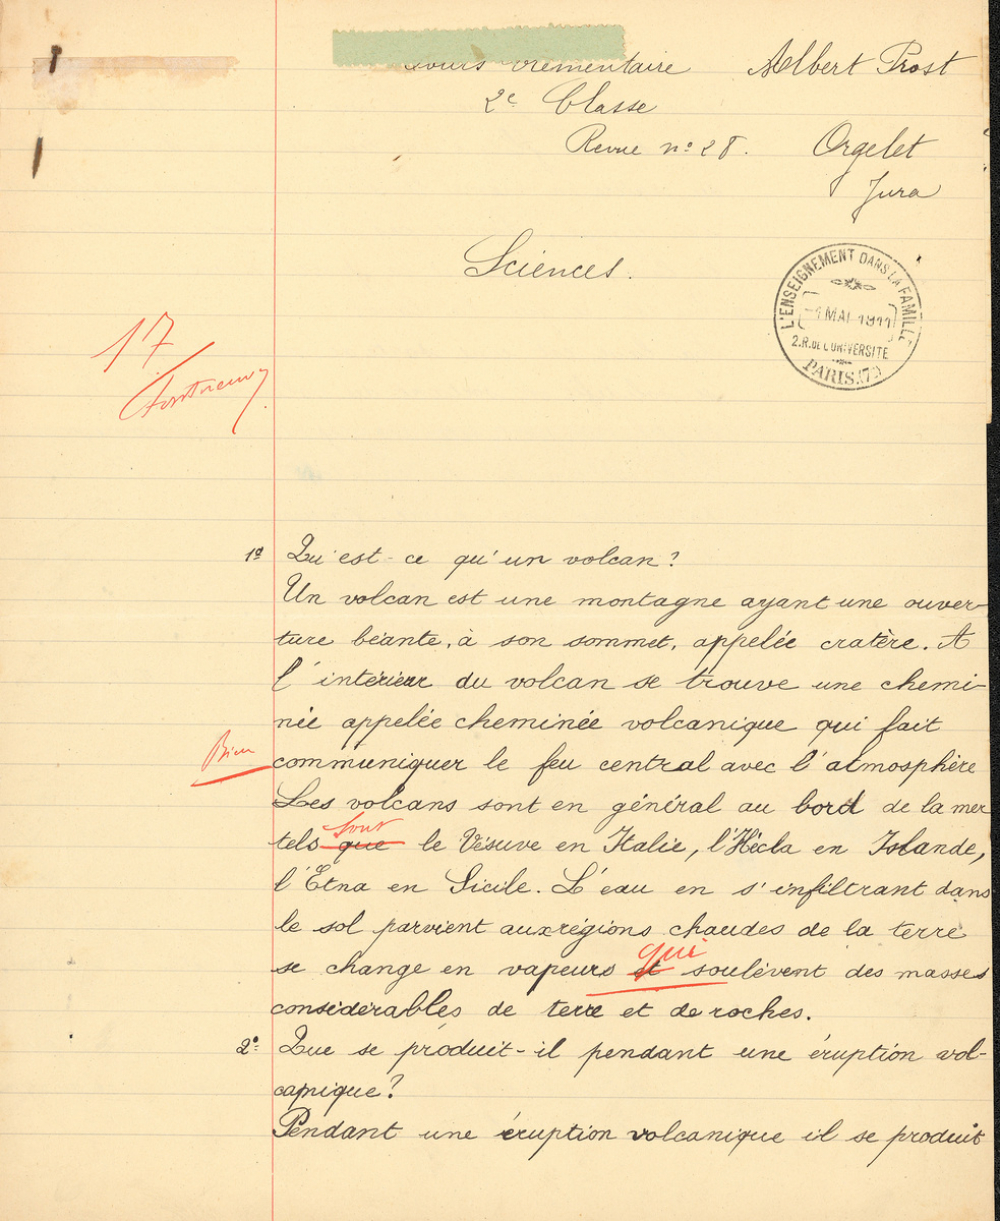 Cours élémentaire Albert Prost
2e Classe
Revue nº 28. Orgelet
Jura
Sciences.
L'ENSEIGNEMENT DANS LA FAMILLE
-1 MAI 1911
2. R. DE L'UNIVERSITE
PARIS (7e)
17
1º Qu'est-ce qu'un volcan?
Un volcan est une montagne ayant une ouver-
ture béante, à son sommet, appelée cratère. A
l'intérieur du volcan se trouve une chemi-
née appelée cheminée volcanique qui fait
Bien
communiquer le feu central avec l'atmosphère
Les volcans sont en général au bord de la mer
sont
tels que le Vésuve en Italie, l'Hécla en Islande,
l'Etna en Sicile. L'eau en s'infiltrant dans
le sol parvient aux régions chaudes de la terre
qui
se change en vapeurs et soulèvent des masses
considérables de terre et de roches.
2º Que se produit-il pendant une éruption vol-
canique?
Pendant une éruption volcanique il se produit